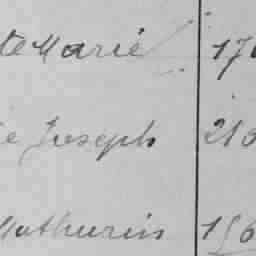 te Marie 17
e Joseph 213
Mathurin 156